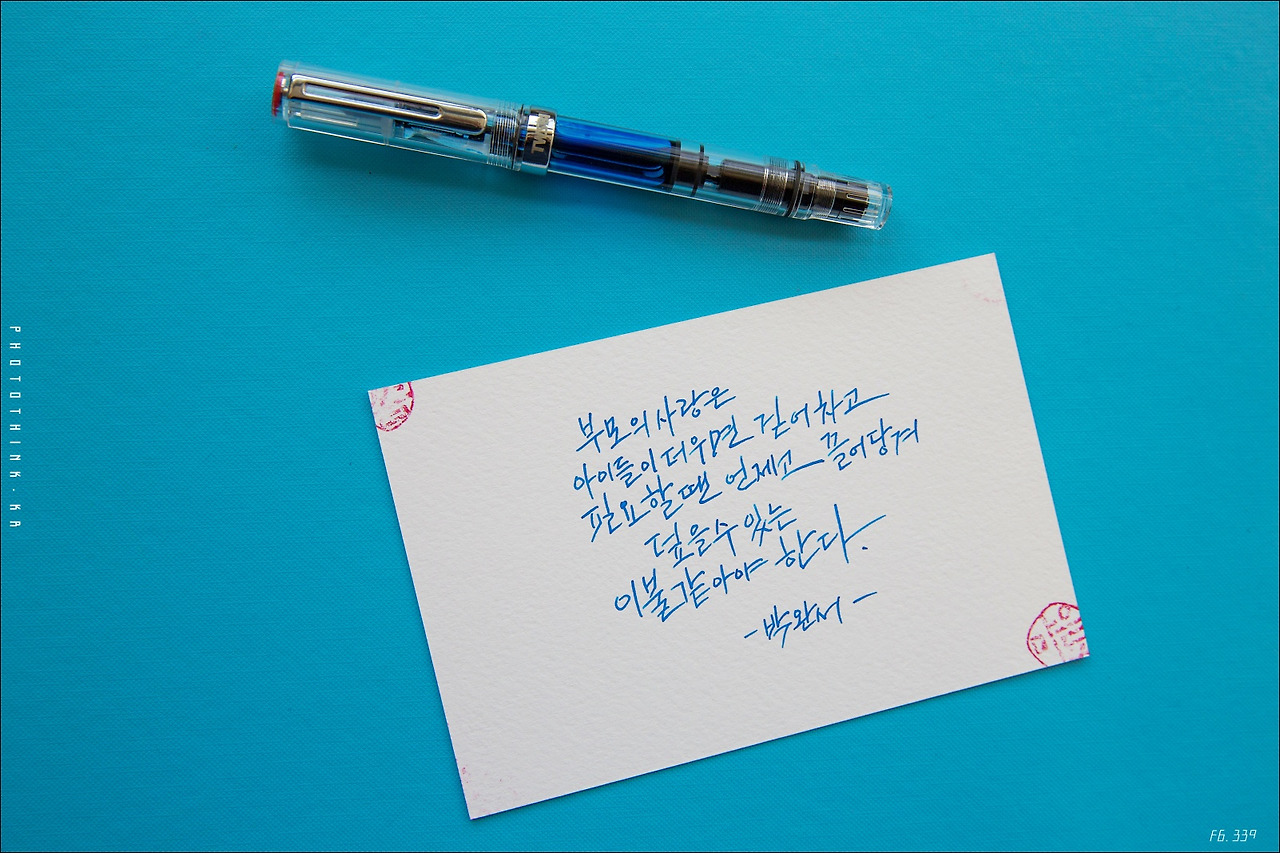 TWSBI
부모의 사랑은
아이들이 더우면 걷어차고
필요할 땐 언제고 끌어당겨
덮을 수 있는
이불 같아야 한다.
- 박완서 -
PHOTOTHINK.KR
FG. 339